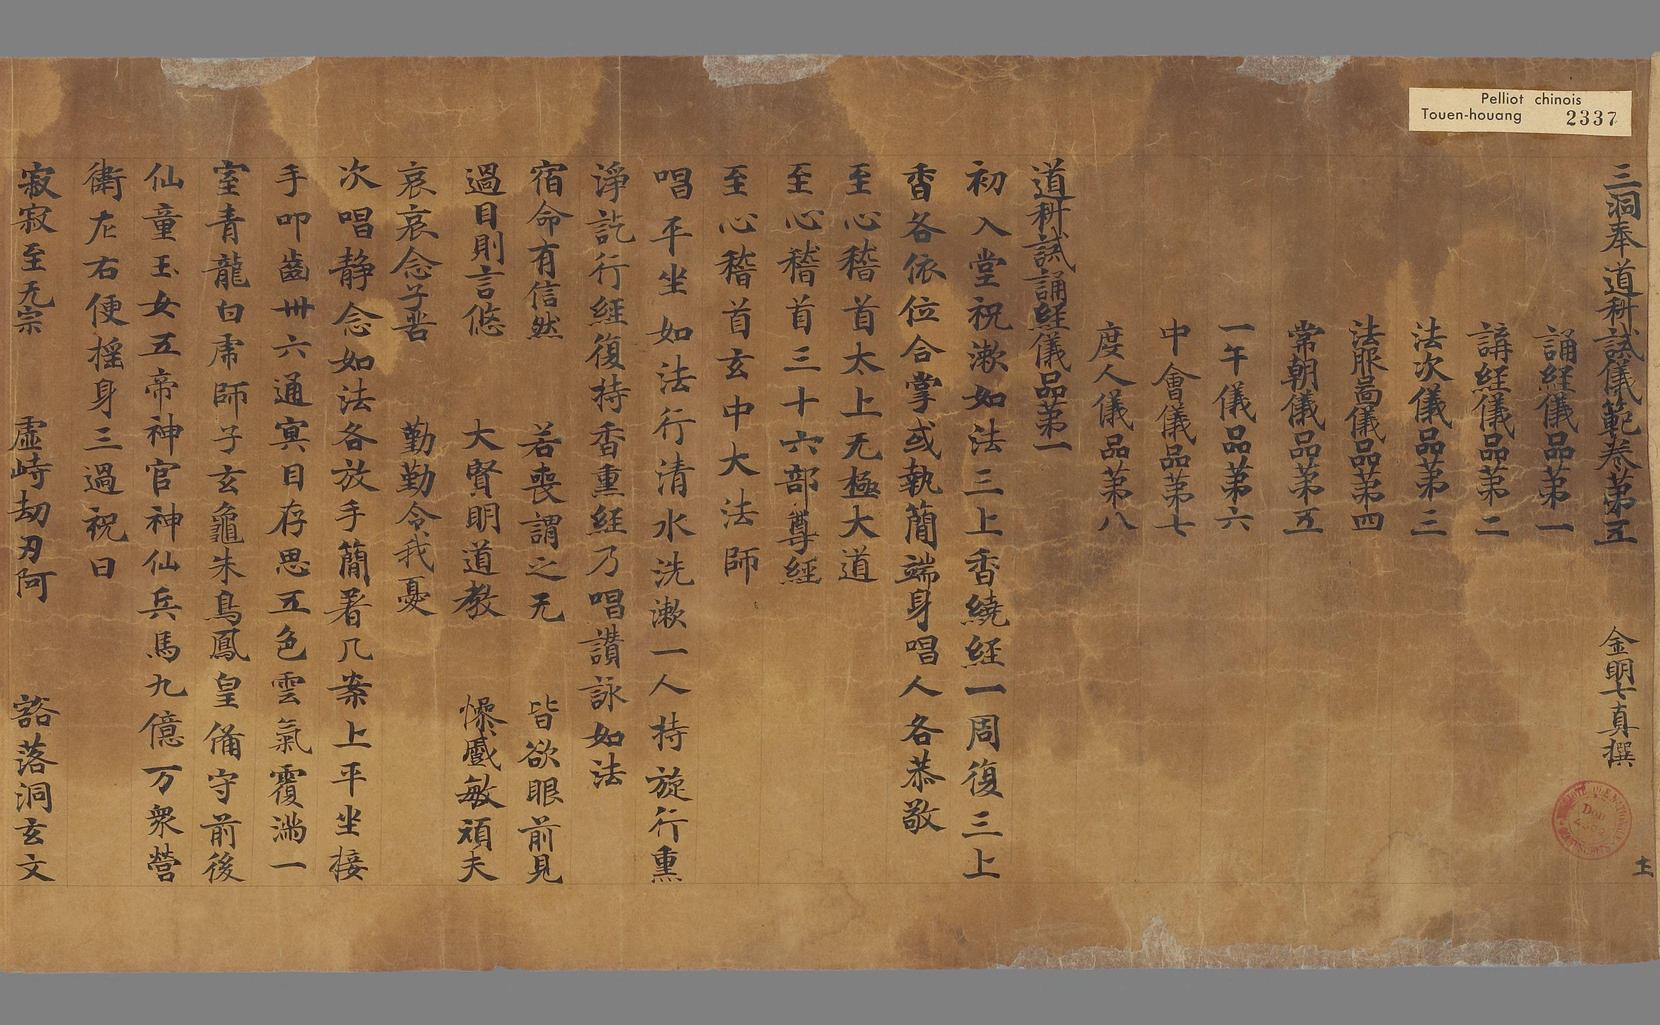 Pelliot chinois
Touen-houang 2337
三洞奉道科誡儀範卷第五 金明七真撰
誦經儀品第一
講經儀品第二
法次儀品第三
法服啚儀品第四
常朝儀品第五
一午儀品第六
中會儀品第七
度人儀品第八
道科誡誦經儀品第一
初入堂祝漱如法三上香繞經一周復三上
香各依位合掌或執簡端身唱人各恭敬
至心稽首太上无極大道
至心稽首三十六部尊經
至心稽首玄中大法師
唱平坐如法行清水洗漱一人持旋行熏
淨訖行經復持香熏經乃唱讚詠如法
宿命有信然 若喪謂之无 皆欲眼前見
過目則言悠 大賢明道教 慘慼敏頑夫
哀哀念子苦 勤勤令我憂
次唱静念如法各放手簡著几案上平坐接
手叩齒卅六通冥目存思五色雲氣覆滿一
室青龍白虎師子玄龜朱鳥鳳皇備守前後
仙童玉女五帝神官神仙兵馬九億万衆營
衛左右便揺身三過祝曰
寂寂至无宗 虛峙劫刃阿 豁落洞玄文